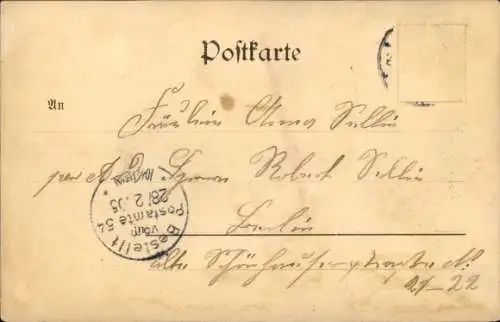 Postkarte
An
Fräulein Anna Sellin
per A. Herrn Robert Sellin
Berlin
Alte Schönhauserstraße No
21-22
Bestellt
vom
Postamte 54
28/2.05